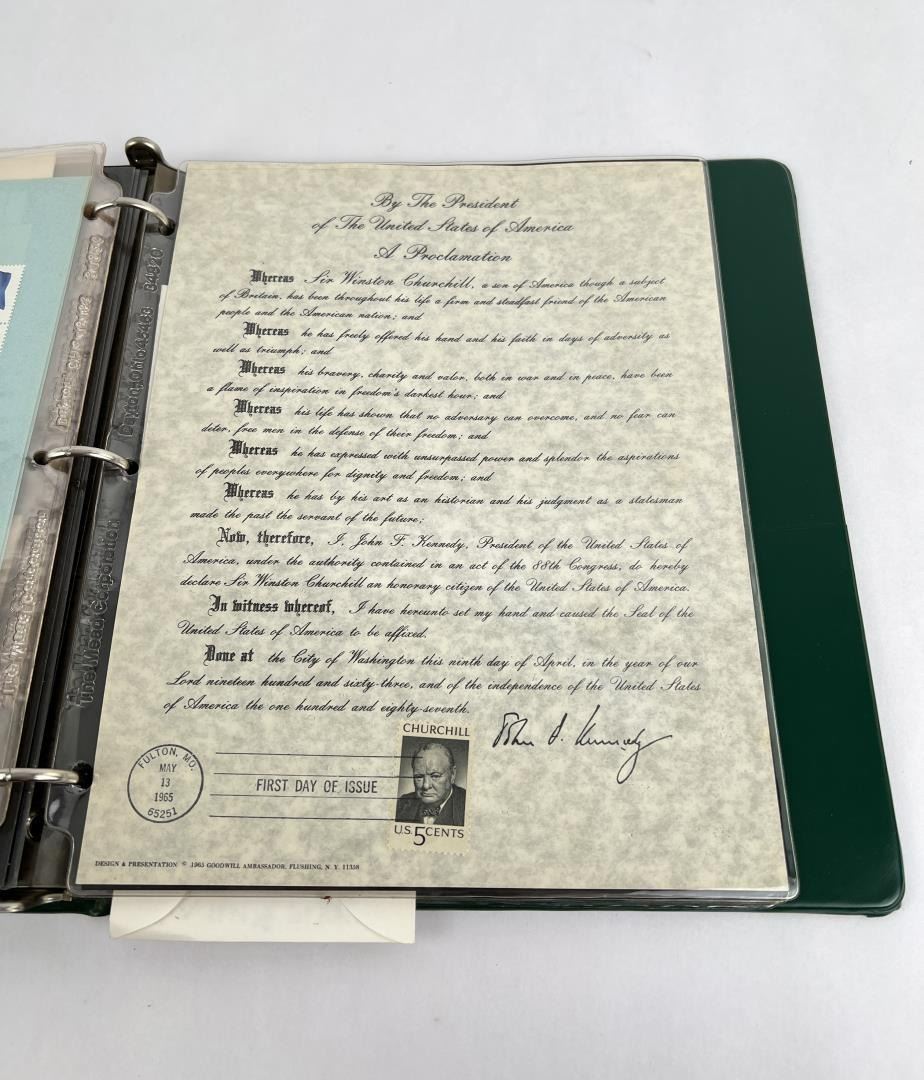 By The President
of The United States of America
A Proclamation
Whereas Sir Winston Churchill, a son of America though a subject
of Britain, has been throughout his life a firm and steadfast friend of the American
people and the American nation; and
Whereas he has freely offered his hand and his faith in days of adversity as
well as triumph; and
Whereas his bravery, charity and valor, both in war and in peace, have been
a flame of inspiration in freedom's darkest hour; and
Whereas his life has shown that no adversary can overcome, and no fear can
deter, free men in the defense of their freedom; and
Whereas he has expressed with unsurpassed power and splendor the aspirations
of peoples everywhere for dignity and freedom; and
Whereas he has by his art as an historian and his judgment as a statesman
made the past the servant of the future;
Now, therefore, I, John F. Kennedy, President of the United States of
America, under the authority contained in an act of the 88th Congress, do hereby
declare Sir Winston Churchill an honorary citizen of the United States of America.
In witness whereof, I have hereunto set my hand and caused the Seal of the
United States of America to be affixed.
Done at the City of Washington this ninth day of April, in the year of our
Lord nineteen hundred and sixty-three, and of the independence of the United States
of America the one hundred and eighty-seventh.
John F. Kennedy
CHURCHILL
U.S. 5 CENTS
FULTON, MO.
MAY
13
1965
65251
FIRST DAY OF ISSUE
DESIGN & PRESENTATION © 1965 GOODWILL AMBASSADOR, FLUSHING, N. Y. 11358
The Mead Corporation